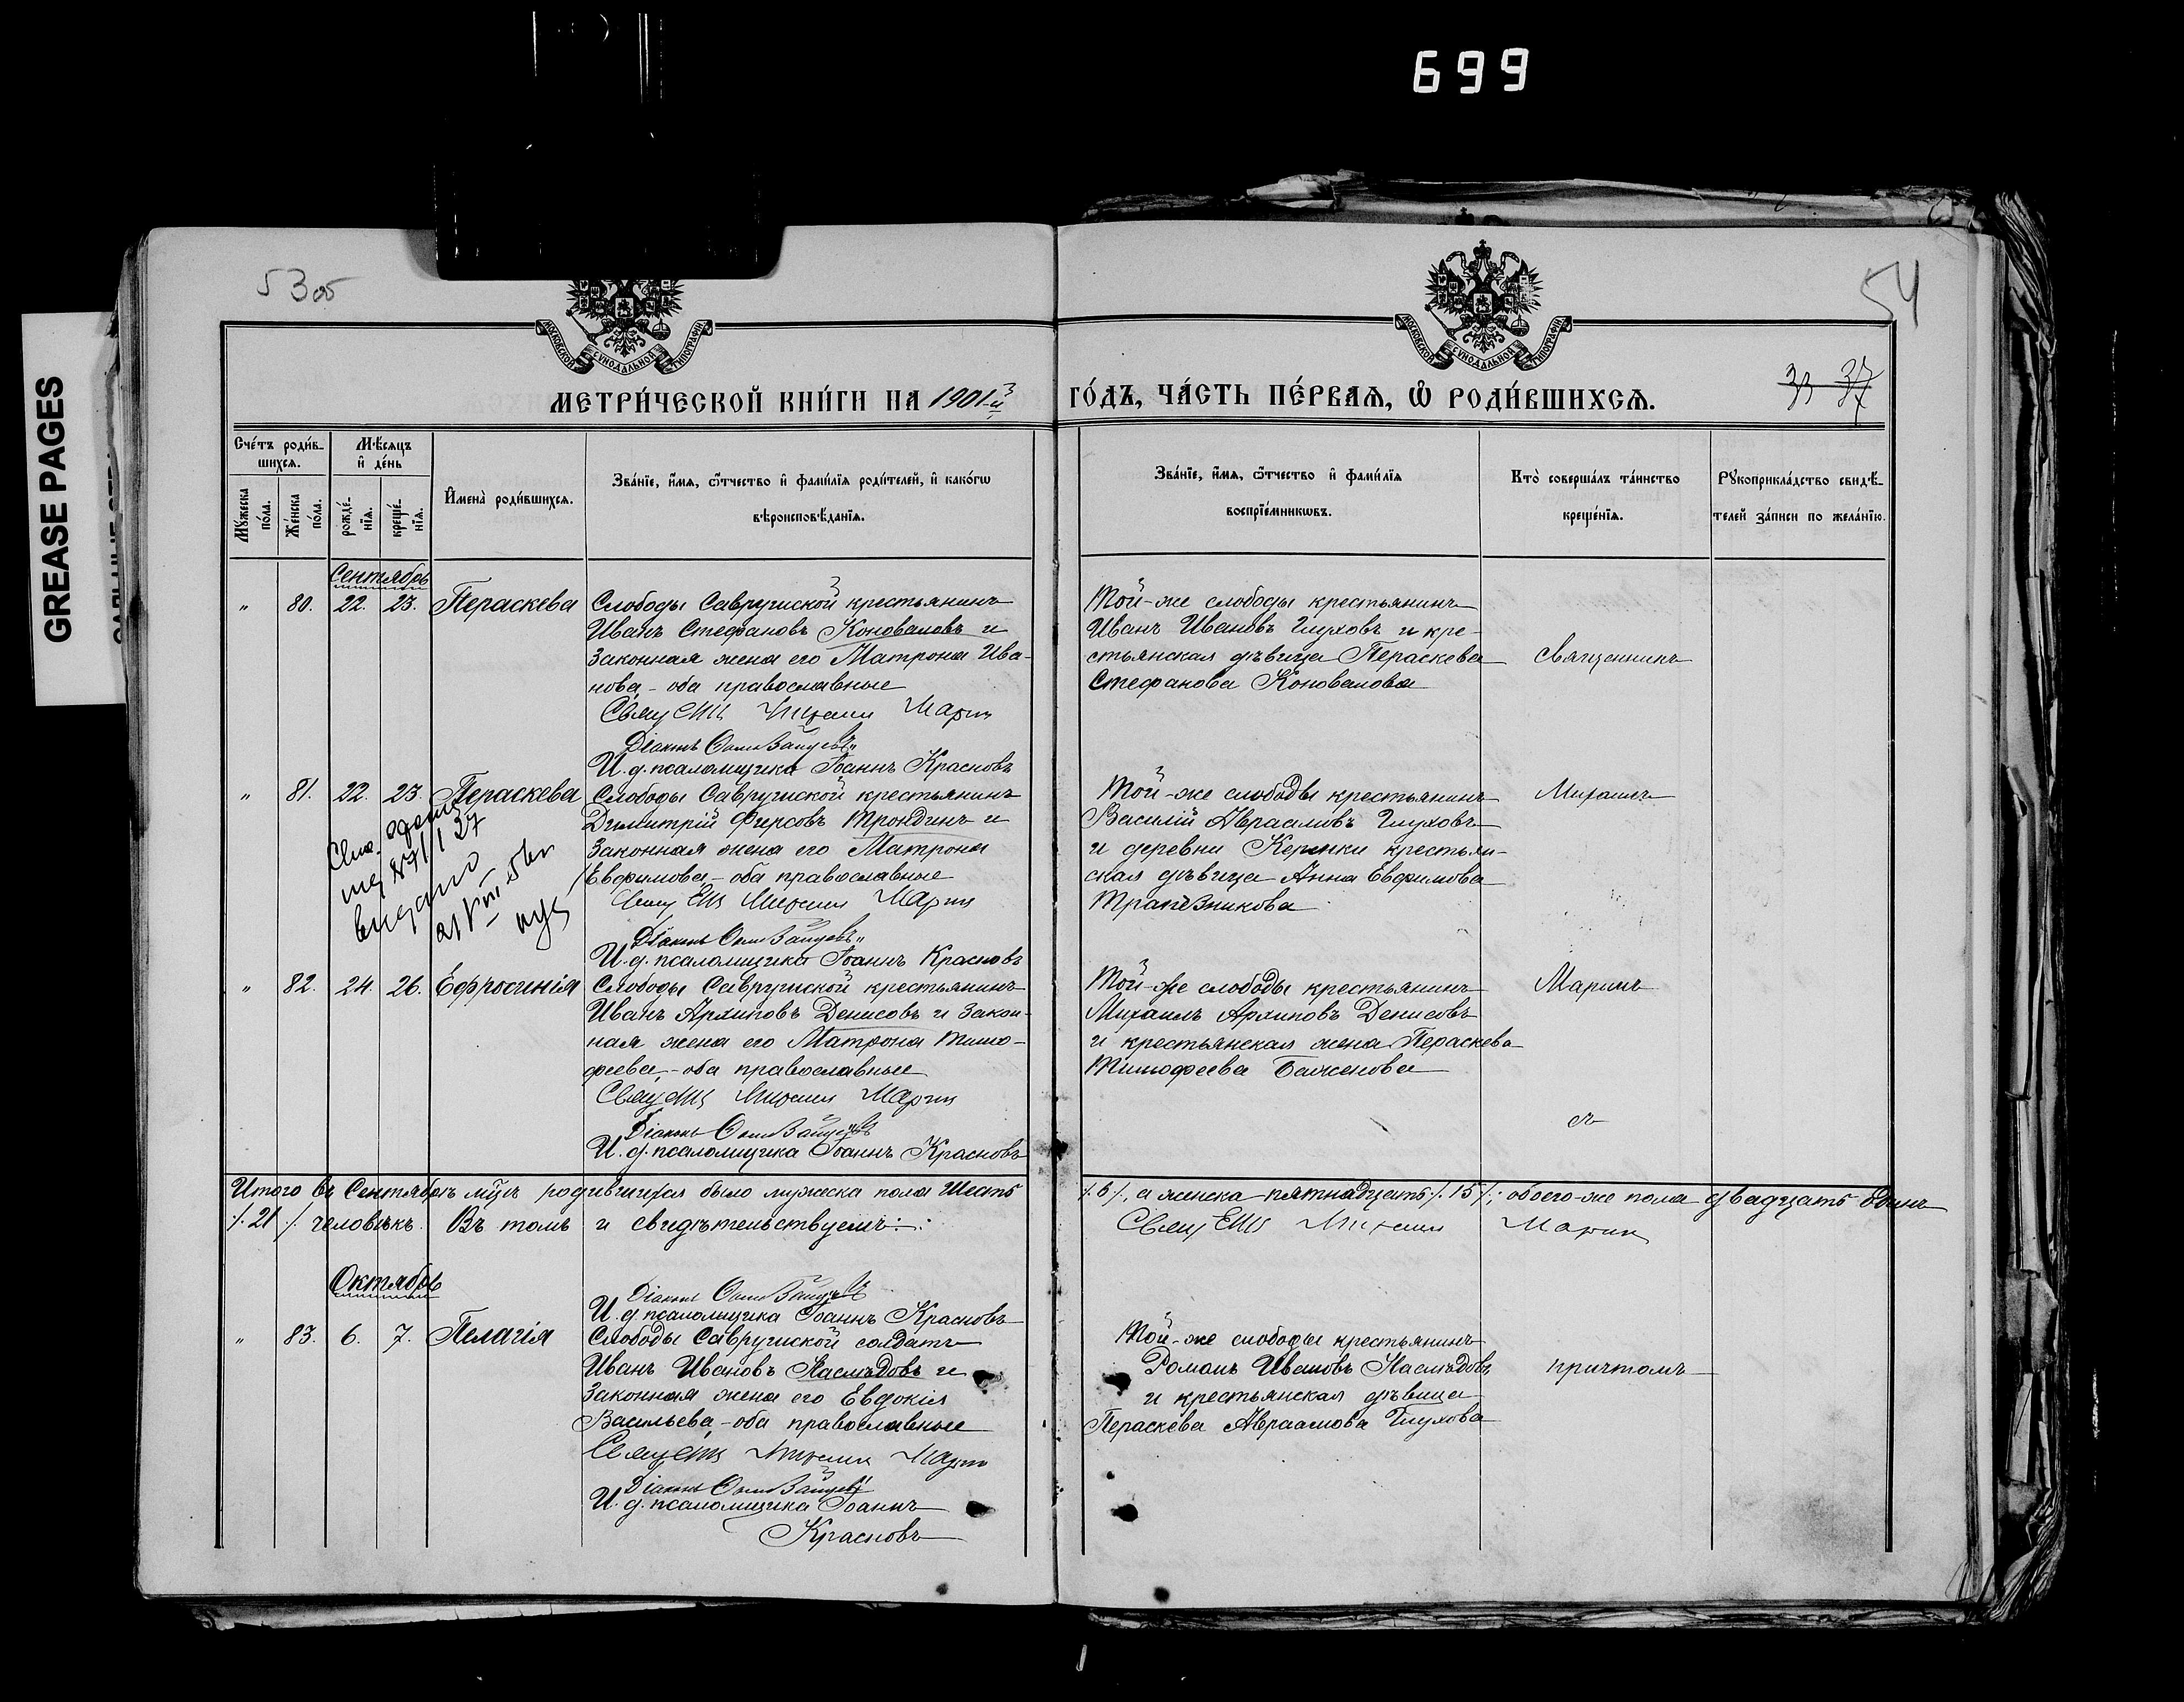 699
GREASE PAGES
53об
54
МОСКОВСКОЙ СѴНОДАЛЬНОЙ ТИПОГРАФІИ
МОСКОВСКОЙ СѴНОДАЛЬНОЙ ТИПОГРАФІИ
МЕТРИ́ЧЕСКОЙ КНИ́ГИ НА 1901-й
ГО́ДЪ, ЧА́СТЬ ПЕ́РВАЯ, Ѿ РОДИ́ВШИХСЯ.
37
Сче́тъ роди́в-
шихся.
Мѣ́сяцъ
и де́нь
Му́жеска
по́ла.
Же́нска
по́ла.
рожде́-
нїя.
креще́-
нїя.
Имена̀ роди́вшихся.
Зва́нїе, и́мя, ѻ҆́тчество и фами́лїя роди́телей, и како́гѡ
вѣроисповѣ́данїя.
Зва́нїе, и́мя, ѻ҆́тчество и фами́лїя
воспрїе́мникѡвъ.
Кто̀ соверша́лъ та́инство
креще́нїя.
Рꙋкоприкла́дство свидѣ́-
телей за́писи по жела́нїю.
Сентябрь
" 80. 22. 23. Пераскева
Слободы Саврушской крестьянинъ
Иванъ Стефановъ Коноваловъ и
законная жена его Матрона Ива-
нова, - оба православные
Діаконъ
И. д. псаломщика Іоаннъ Красновъ
Той-же слободы крестьянинъ
Иванъ Ивановъ Глуховъ и кре-
стьянская дѣвица Пераскева
Стефанова Коновалова
Священникъ
" 81. 22. 23. Пераскева
Слободы Саврушской крестьянинъ
Димитрій Фирсовъ Трондинъ и
законная жена его Матрона
Евфимова, - оба православные
Діаконъ
И. д. псаломщика Іоаннъ Красновъ
выдано
Той-же слободы крестьянинъ
Василій Авраамовъ Глуховъ
и деревни Керенки крестьян-
ская дѣвица Анна Евфимова
Трапезникова
Михаилъ
" 82. 24. 26. Ефросинія
Слободы Саврушской крестьянинъ
Иванъ Архиповъ Денисовъ и закон-
ная жена его Матрона Тимо-
феева, - оба православные
Діаконъ
И. д. псаломщика Іоаннъ Красновъ
Той-же слободы крестьянинъ
Михаилъ Архиповъ Денисовъ
и крестьянская жена Пераскева
Тимофеева Баженова
Маринъ
съ
Итого въ Сентябрѣ мцѣ родившихся было мужеска пола шесть /.6/., а женска - пятнадцать /.15/.; обоего-же пола двадцать одинъ
/.21./ человѣкъ. Въ томъ и свидѣтельствуемъ:
Октябрь
Діаконъ
И. д. псаломщика Іоаннъ Красновъ
" 83. 6. 7. Пелагія
Слободы Саврушской солдатъ
Иванъ Ивановъ Наслѣдовъ и
законная жена его Евдокія
Васильева, - оба православные
Діаконъ
И. д. псаломщика Іоаннъ
Красновъ
Той-же слободы крестьянинъ
Романъ Ивановъ Наслѣдовъ
и крестьянская дѣвица
Пераскева Авраамова Глухова
причтомъ